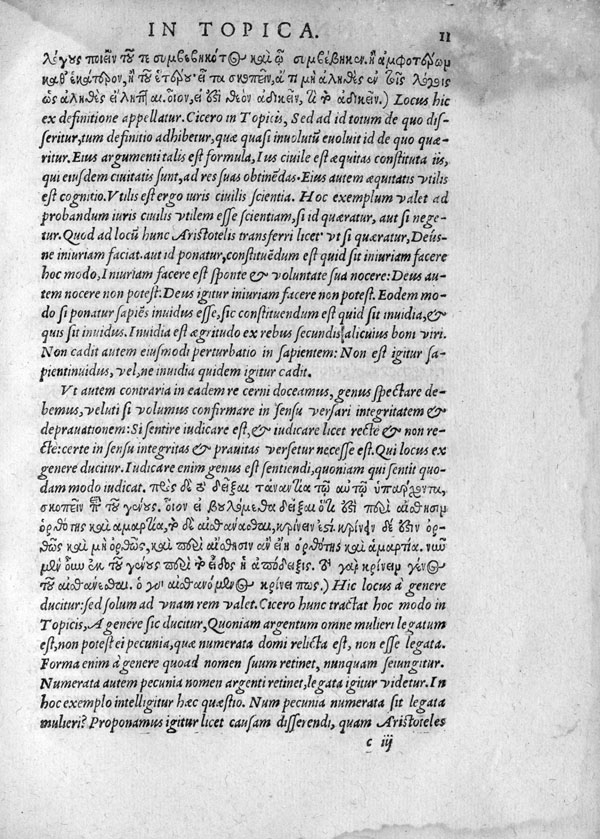 IN TOPICA. 11
λόγους ποιεῖν τοῦ τε συμβεβηκότος καὶ ᾧ συμβέβηκεν. ἢ ἀμφοτέρων
καθ' ἑκάτερον, ἢ τοῦ ἑτέρου· εἶτα σκοπεῖν, ἄ τι μὴ ἀληθὲς ἐν τοῖς λόγοις
ὡς ἀληθὲς εἴληπται. οἷον, εἰ ἔστι θεὸν ἀδικεῖν, τί τὸ ἀδικεῖν.) Locus hic
ex definitione appellatur. Cicero in Topicis, Sed ad id totum de quo dis-
seritur, tum definitio adhibetur, quæ quasi inuolutū euoluit id de quo quæ-
ritur. Eius argumenti talis est formula, Ius ciuile est æquitas constituta iis,
qui eiusdem ciuitatis sunt, ad res suas obtinēdas. Eius autem æquitatis vtilis
est cognitio. Vtilis est ergo iuris ciuilis scientia. Hoc exemplum valet ad
probandum iuris ciuilis vtilem esse scientiam, si id quæratur, aut si nege-
tur. Quod ad locū hunc Aristotelis transferri licet vt si quæratur, Deus-
ne iniuriam faciat. aut id ponatur, constituēdum est quid sit iniuriam facere
hoc modo, Iniuriam facere est sponte & voluntate sua nocere: Deus au-
tem nocere non potest: Deus igitur iniuriam facere non potest. Eodem mo-
do si ponatur sapiēs inuidus esse, sic constituendum est quid sit inuidia, &
quis sit inuidus. Inuidia est ægritudo ex rebus secundis alicuius boni viri.
Non cadit autem eiusmodi perturbatio in sapientem: Non est igitur sa-
pientinuidus, vel, ne inuidia quidem igitur cadit.
Vt autem contraria in eadem re cerni doceamus, genus spectare de-
bemus, veluti si volumus confirmare in sensu versari integritatem &
deprauationem: Si sentire iudicare est, & iudicare licet rectè & non re-
ctè: certe in sensu integritas & prauitas versetur necesse est. Qui locus ex
genere ducitur. Iudicare enim genus est sentiendi, quoniam qui sentit quo-
dam modo iudicat. πρὸς δὲ τὸ δεῖξαι τἀναντία τῷ αὐτῷ ὑπάρχοντα,
σκοπεῖν ἐπὶ τοῦ γένους. οἷον εἰ βουλόμεθα δεῖξαι ὅτι ἔστι περὶ αἴσθησιν
ὀρθότης καὶ ἁμαρτία, τὸ δὲ αἰσθάνεσθαι, κρίνειν ἐστί. κρίνειν δὲ ἔστιν ὀρ-
θῶς καὶ μὴ ὀρθῶς, καὶ περὶ αἴσθησιν ἂν εἴη ὀρθότης καὶ ἁμαρτία. νῦν
μὲν οὖν ἐκ τοῦ γένους περὶ τὸ εἶδος ἡ ἀπόδειξις. τὸ γὰρ κρίνειν γένος
τοῦ αἰσθάνεσθαι. ὁ γὰρ αἰσθανόμενος κρίνει πως.) Hic locus à genere
ducitur: sed solum ad vnam rem valet. Cicero hunc tractat hoc modo in
Topicis, A genere sic ducitur, Quoniam argentum omne mulieri legatum
est, non potest ei pecunia, quæ numerata domi relicta est, non esse legata.
Forma enim à genere quoad nomen suum retinet, nunquam seiungitur.
Numerata autem pecunia nomen argenti retinet, legata igitur videtur. In
hoc exemplo intelligitur hæc quæstio. Num pecunia numerata sit legata
mulieri? Proponamus igitur licet causam disserendi, quam Aristoteles
c iij